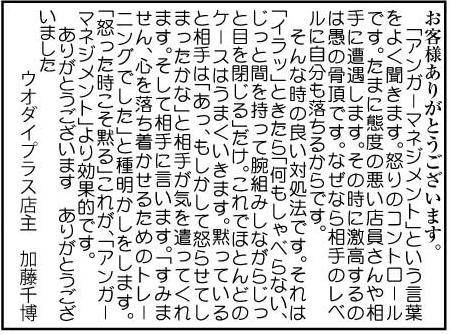 お客様ありがとうございます。
「アンガーマネジメント」という言葉
をよく聞きます。怒りのコントロール
です。たまに態度の悪い店員さんや相
手に遭遇します。その時に激高するの
は愚の骨頂です。なぜなら相手のレベ
ルに自分も落ちるからです。
そんな時の良い対処法です。それは
「イラッ」ときたら「何もしゃべらない、
じっと間を持って腕組みしながらじっ
と目を閉じる」だけ。これでほとんどの
ケースはうまくいきます。黙っている
と相手は「あっ、もしかして怒らせてし
まったかな」と相手が気を遣ってくれ
ます。そして相手に言います。「すみま
せん、心を落ち着かせるためのトレー
ニングでした」と種明かしをします。
「怒った時こそ黙る」これが、「アンガー
マネジメント」より効果的です。
ありがとうございます　ありがとうござ
いました
ウオダイプラス店主　加藤千博